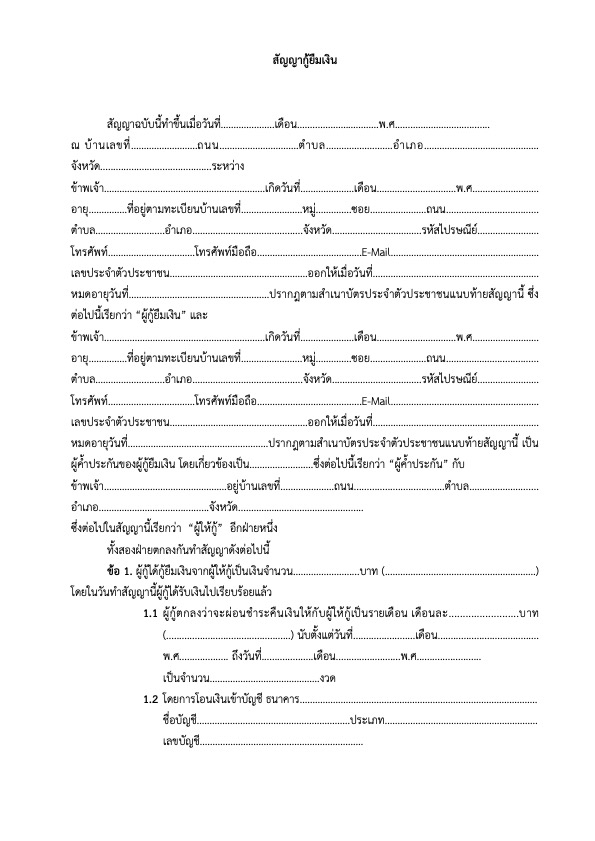 สัญญากู้ยืมเงิน
สัญญาฉบับนี้ทำขึ้นเมื่อวันที่.....................เดือน................................พ.ศ.....................................
ณ บ้านเลขที่..........................ถนน...............................ตำบล..........................อำเภอ.............................................
จังหวัด...........................................ระหว่าง
ข้าพเจ้า...............................................................เกิดวันที่.....................เดือน...............................พ.ศ..........................
อายุ...............ที่อยู่ตามทะเบียนบ้านเลขที่........................หมู่..............ซอย......................ถนน....................................
ตำบล...........................อำเภอ...........................................จังหวัด...................................รหัสไปรษณีย์........................
โทรศัพท์..................................โทรศัพท์มือถือ.........................................E-Mail..........................................................
เลขประจำตัวประชาชน......................................................ออกให้เมื่อวันที่.................................................................
หมดอายุวันที่.......................................................ปรากฎตามสำเนาบัตรประจำตัวประชาชนแนบท้ายสัญญานี้ ซึ่ง
ต่อไปนี้เรียกว่า “ผู้กู้ยืมเงิน” และ
ข้าพเจ้า...............................................................เกิดวันที่.....................เดือน...............................พ.ศ..........................
อายุ...............ที่อยู่ตามทะเบียนบ้านเลขที่........................หมู่..............ซอย......................ถนน....................................
ตำบล...........................อำเภอ...........................................จังหวัด...................................รหัสไปรษณีย์........................
โทรศัพท์..................................โทรศัพท์มือถือ.........................................E-Mail..........................................................
เลขประจำตัวประชาชน......................................................ออกให้เมื่อวันที่.................................................................
หมดอายุวันที่.......................................................ปรากฎตามสำเนาบัตรประจำตัวประชาชนแนบท้ายสัญญานี้ เป็น
ผู้ค้ำประกันของผู้กู้ยืมเงิน โดยเกี่ยวข้องเป็น.........................ซึ่งต่อไปนี้เรียกว่า “ผู้ค้ำประกัน” กับ
ข้าพเจ้า................................................อยู่บ้านเลขที่.....................ถนน....................................ตำบล...........................
อำเภอ...........................................จังหวัด.................................................
ซึ่งต่อไปในสัญญานี้เรียกว่า “ผู้ให้กู้” อีกฝ่ายหนึ่ง
ทั้งสองฝ่ายตกลงกันทำสัญญาดังต่อไปนี้
ข้อ 1. ผู้กู้ได้กู้ยืมเงินจากผู้ให้กู้เป็นเงินจำนวน..........................บาท (...........................................................)
โดยในวันทำสัญญานี้ผู้กู้ได้รับเงินไปเรียบร้อยแล้ว
1.1 ผู้กู้ตกลงว่าจะผ่อนชำระคืนเงินให้กับผู้ให้กู้เป็นรายเดือน เดือนละ........................บาท
(.................................................) นับตั้งแต่วันที่........................เดือน........................................
พ.ศ................... ถึงวันที่....................เดือน.........................พ.ศ.........................
เป็นจำนวน...........................................งวด
1.2 โดยการโอนเงินเข้าบัญชี ธนาคาร.............................................................................................
ชื่อบัญชี............................................................ประเภท............................................................
เลขบัญชี................................................................